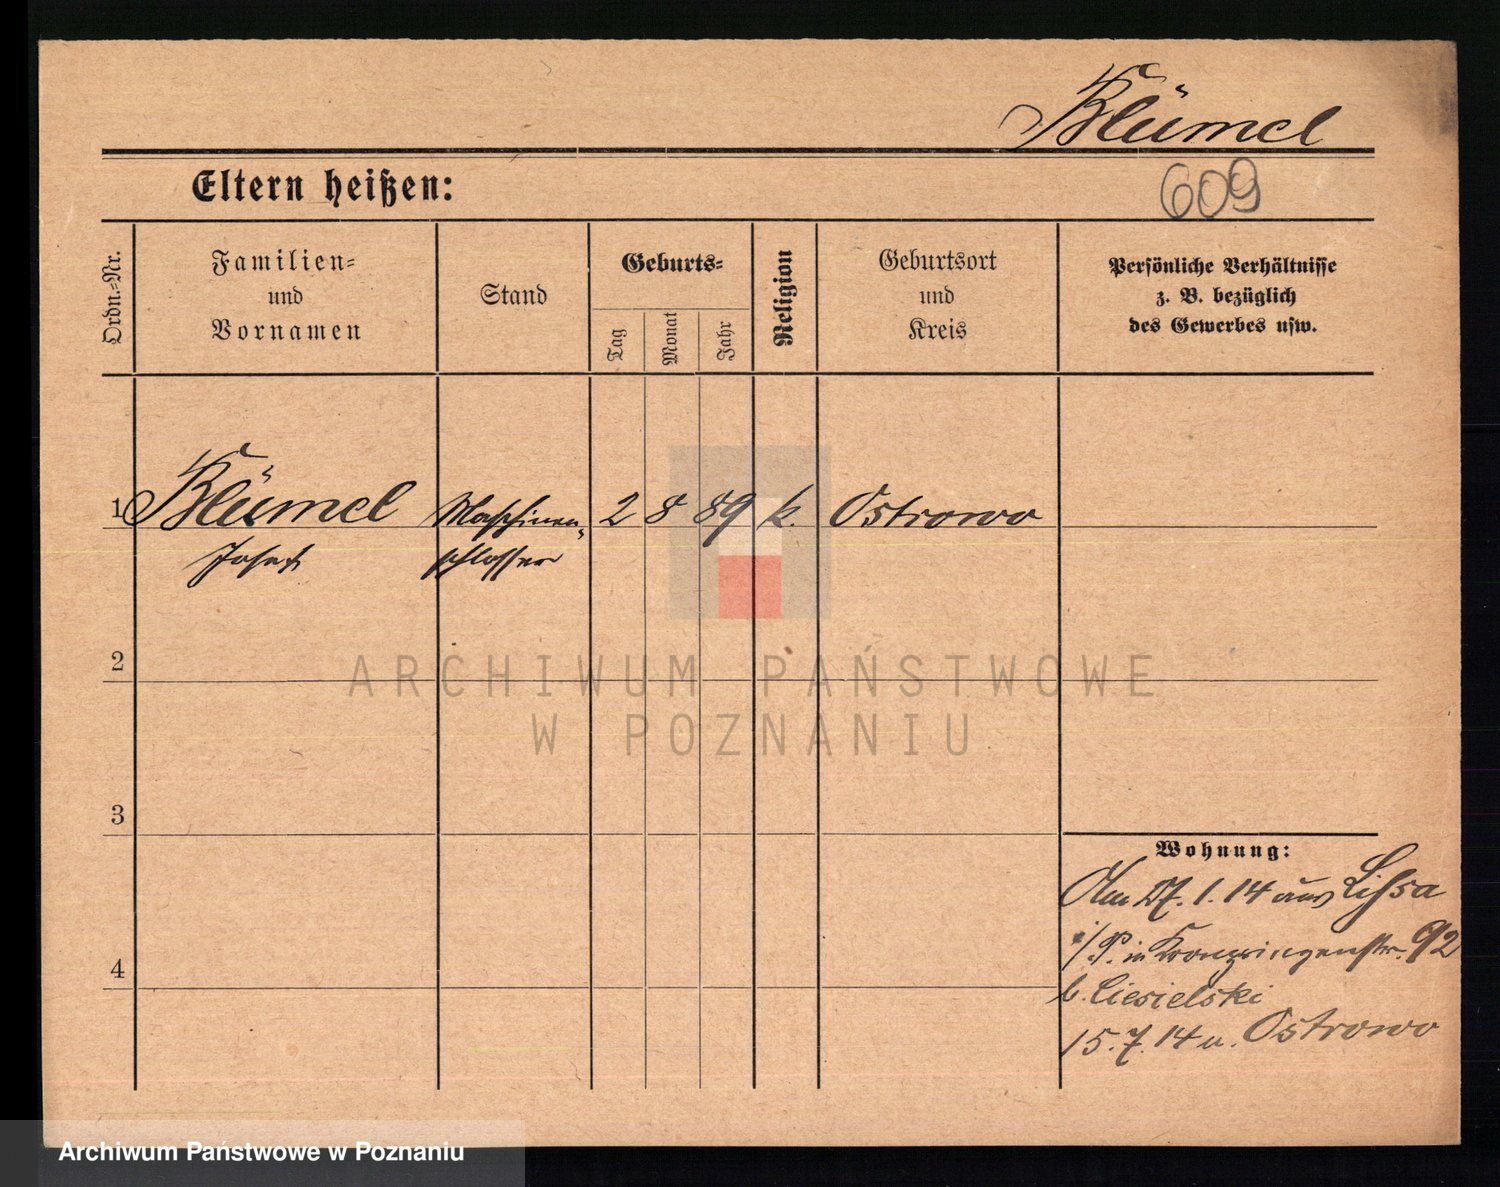 Blümel
Eltern heißen:
609
Ordn.-Nr.
Familien-
und
Vornamen
Stand
Geburts-
Tag
Monat
Jahr
Religion
Geburtsort
und
Kreis
Persönliche Verhältnisse
z. B. bezüglich
des Gewerbes usw.
1 Blümel Maschinen- 2 8 89 k. Ostrowo
Josef schlosser
2
ARCHIWUM PAŃSTWOWE
W POZNANIU
3
Wohnung:
Am 27. 1. 14 aus Lissa
i/P. in Kronprinzenstr. 92
b. Ciesielski
4
15. 7. 14 n. Ostrowo
Archiwum Państwowe w Poznaniu